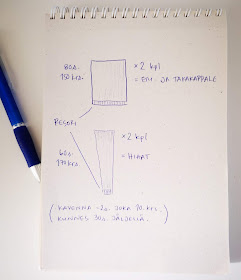 80s.
150 krs.
× 2 kpl
= ETU- JA TAKAKAPPALE
RESORI
60s.
170 krs.
× 2 kpl
= HIHAT
( KAVENNA -2s. JOKA 10. krs.
KUNNES 30s. JÄLJELLÄ. )